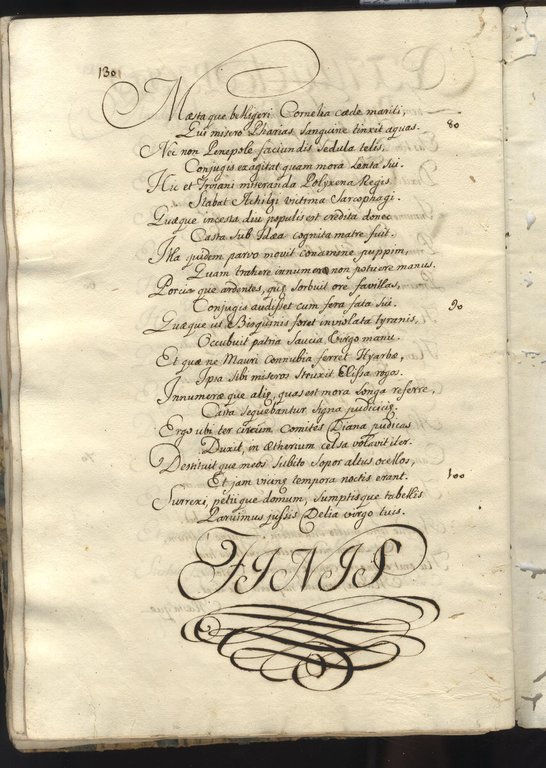 130
Mæstaque belligeri Cornelia cæde mariti,
Qui misero Pharias sanguine tinxit aquas. 80
Nec non Penepole faciundis sedula telis,
Conjugis exagitat quam mora lenta sui.
Hic et Troiani miseranda Polyxena Regis
Stabat Achilei victima Sarcophagi.
Quæque incesta diu populis est credita donec
Casta sub Idæa cognita matre fuit.
Illa quidem parvo movit conamine puppim,
Quam trahere innumeræ non potuere manus.
Porciaque ardentes, quæ sorbuit ore favillas,
Conjugis audisset cum fera fata sui. 90
Quæque ut Bisquinis foret inviolata tyranis,
Occubuit patria saucia Virgo manu.
Et quæ ne Mauri connubia ferret Hyarbæ,
Ipsa sibi miseros struxit Elissa rogos.
Innumeræque aliæ, quas est mora longa referre,
Casta sequebantur signa pudicitiæ.
Ergo ubi ter circum Comites Diana pudicas
Duxit, in æthereum celsa volavit iter.
Destituitque meos subito sopor altus ocellos,
Et jam vicinæ tempora noctis erant. 100
Surrexi, petiique domum, sumptisque tabellis
Paruimus jussis Delia virgo tuis.
FINIS